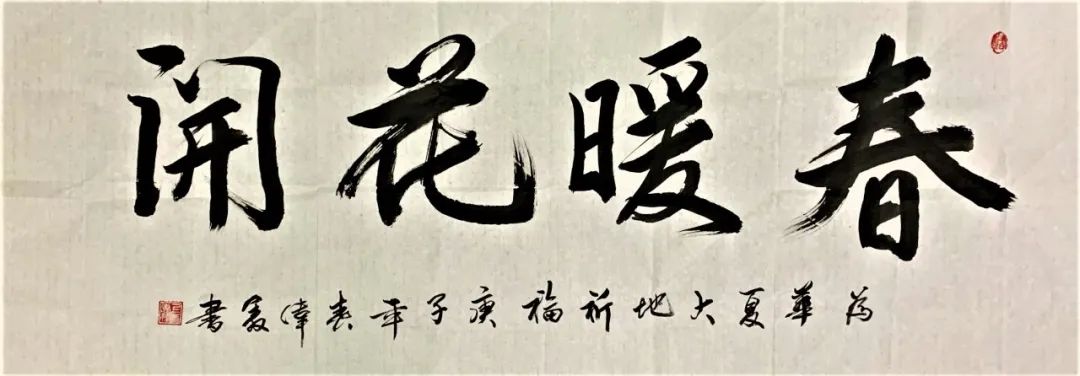 春暖花開
為華夏大地祈福庚子年春偉書